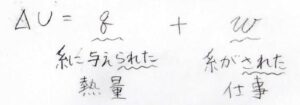 ΔU = q + w
系に与えられた 系がされた
熱量 仕事